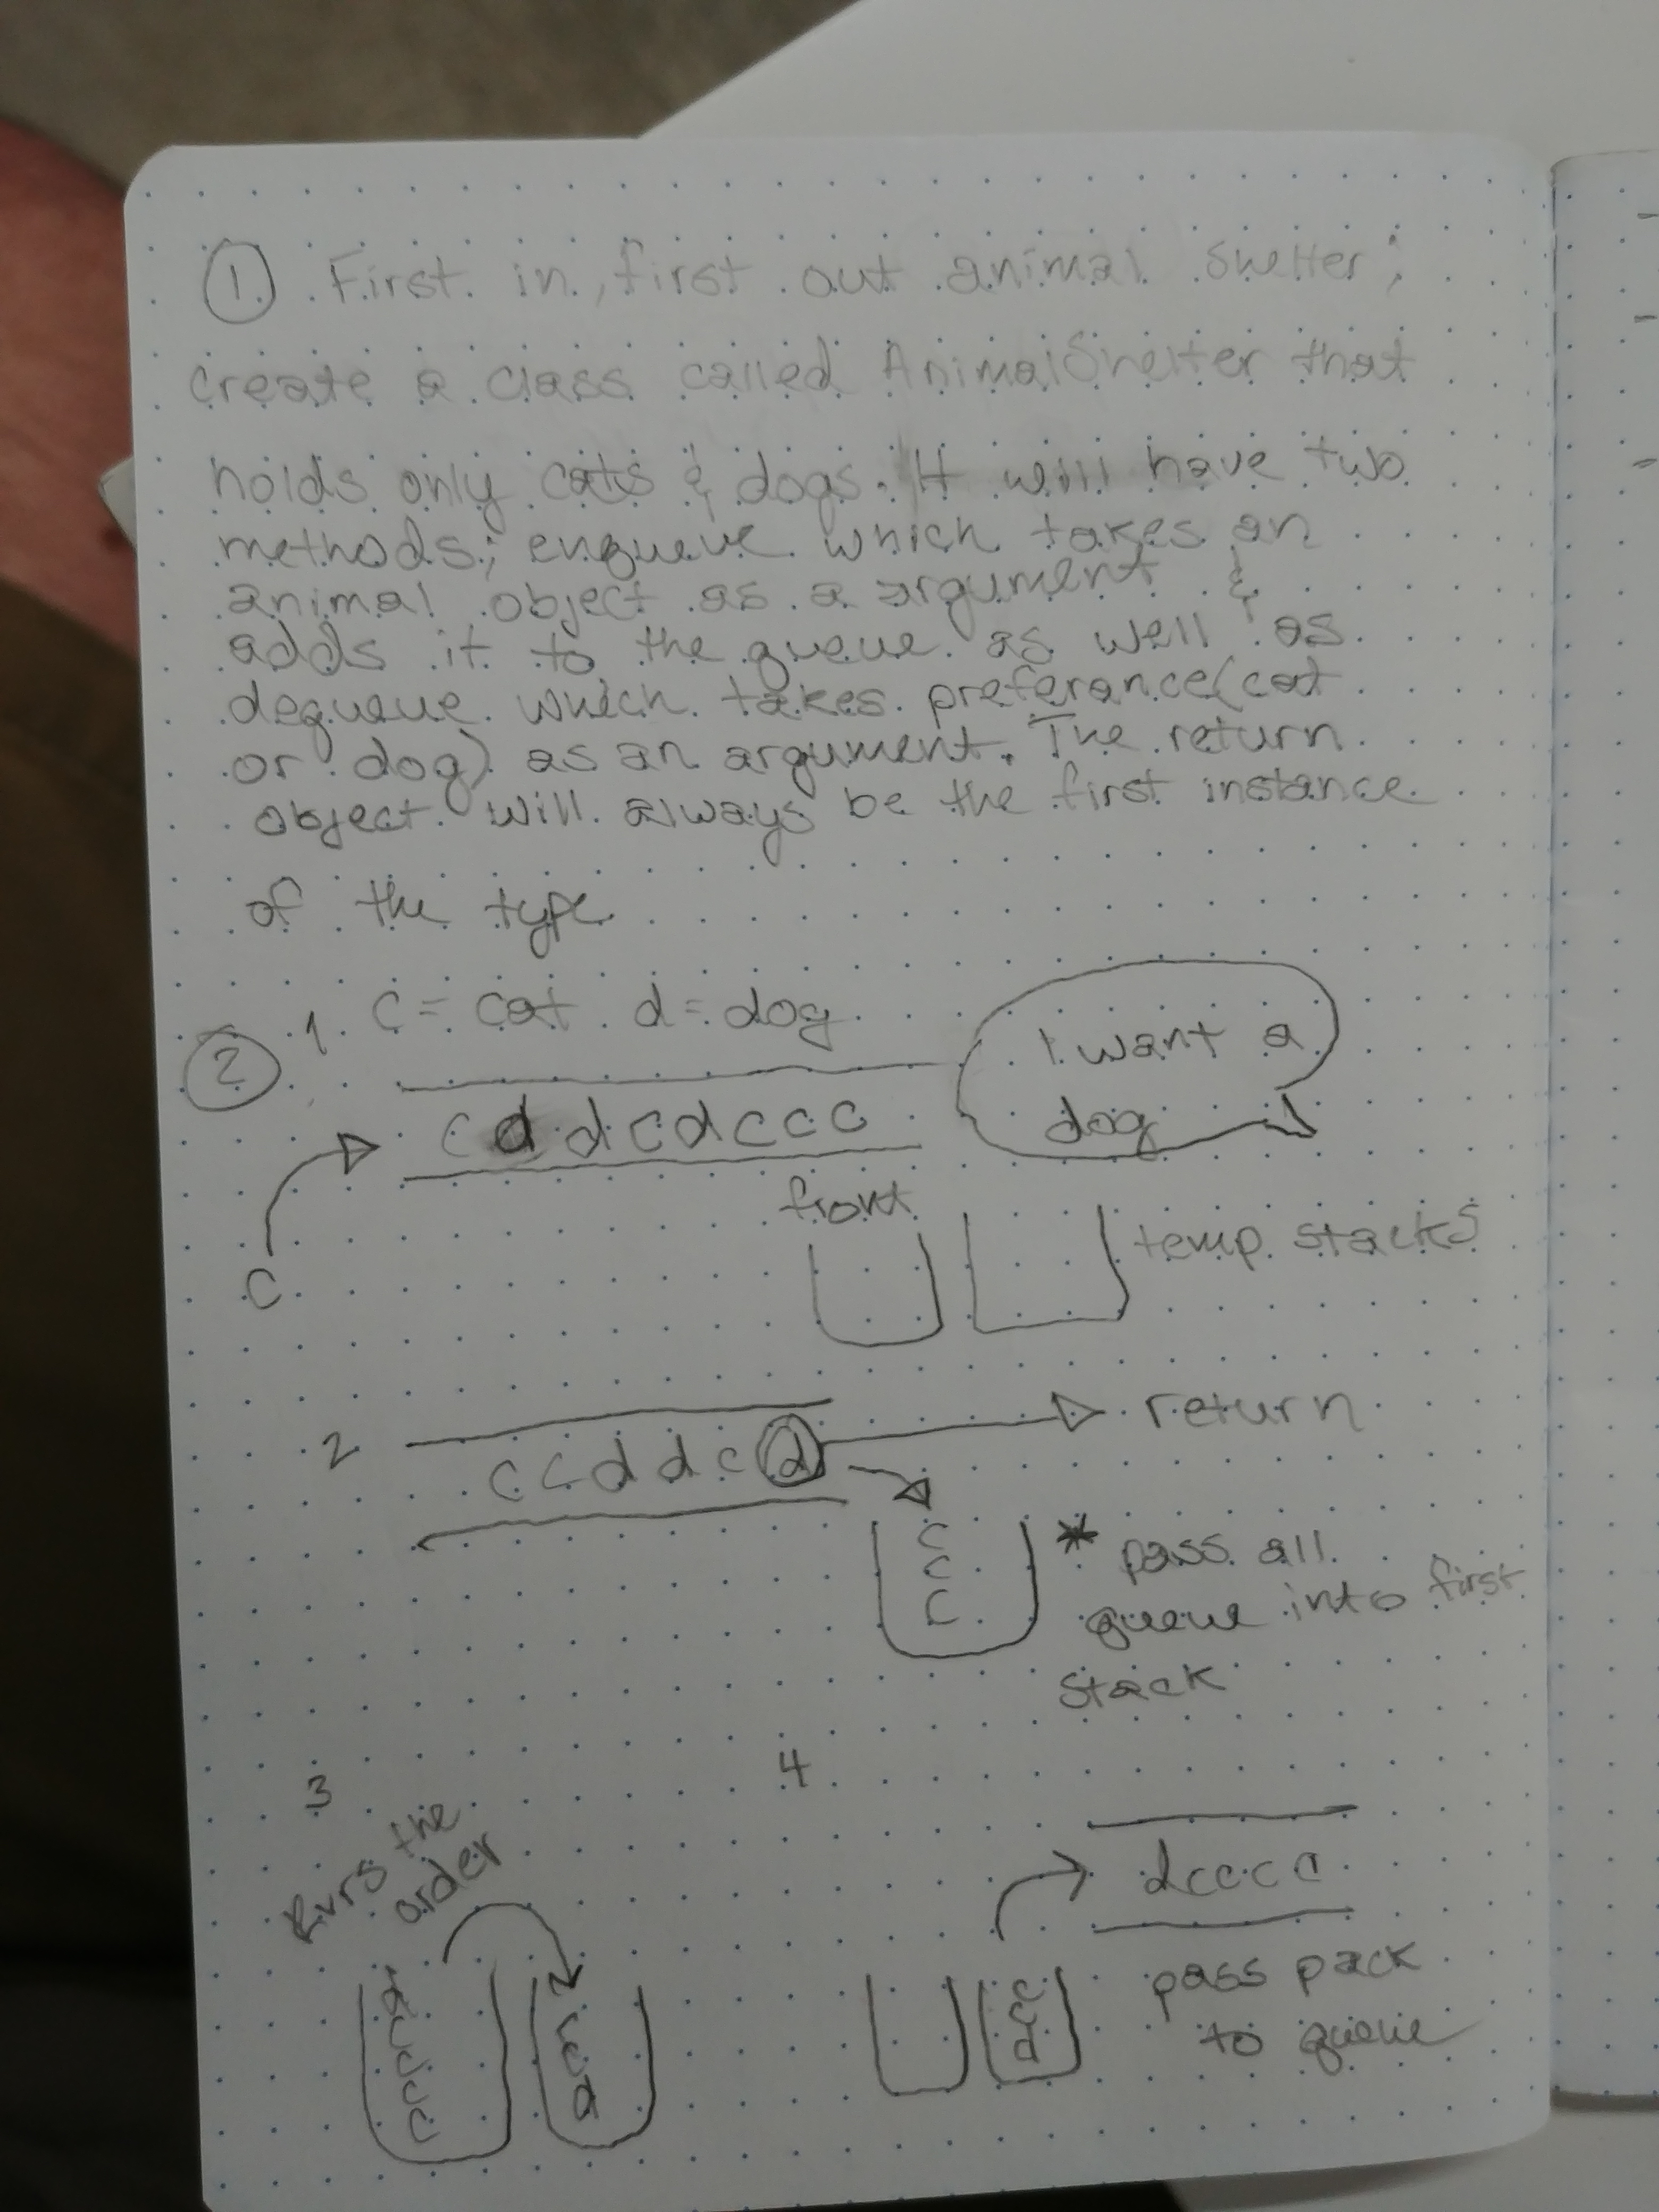 ① First in, first out animal shelter;
create a class called AnimalShelter that
holds only cats & dogs. It will have two
methods; enqueue which takes an
animal object as a argument &
adds it to the queue as well as
dequeue which takes preferance (cat
or dog) as an argument. The return
object will always be the first instance
of the type
② 1. c = cat d = dog
I want a
dog
c d d c d c c c
front
c
temp stacks
2
c c d d c d
return
c
c
c
* pass all
queue into first
stack
3
Rvrs the
order
d
c
c
c
c
c
d
4
d c c c c
c
c
d
pass pack
to queue